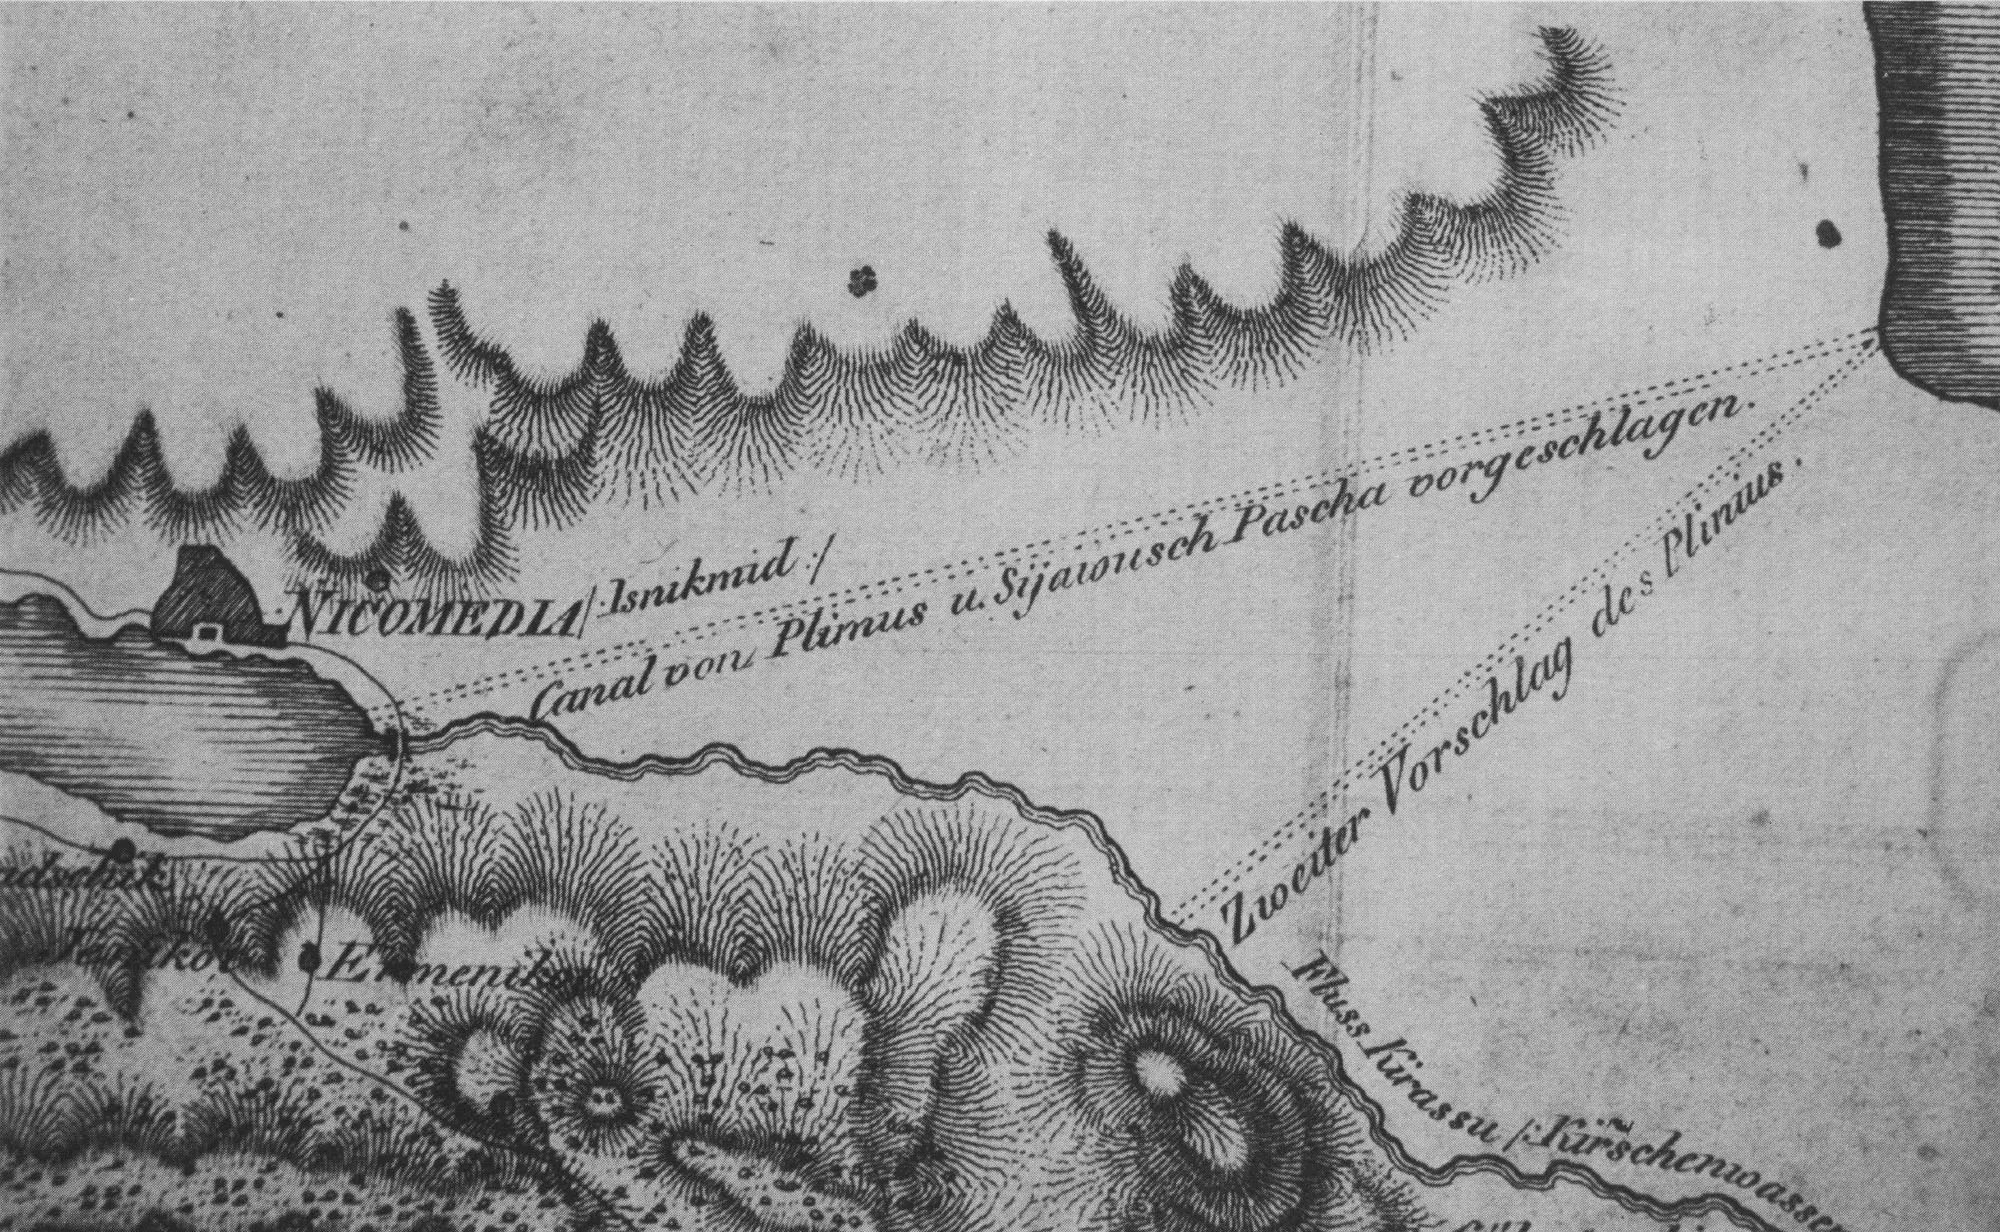 NICOMEDIA /:Isnikmid:/
Canal von Plinius u. Sÿawusch Pascha vorgeschlagen.
Zweiter Vorschlag des Plinius.
Fluss Kirassu /:Kirschenwasser